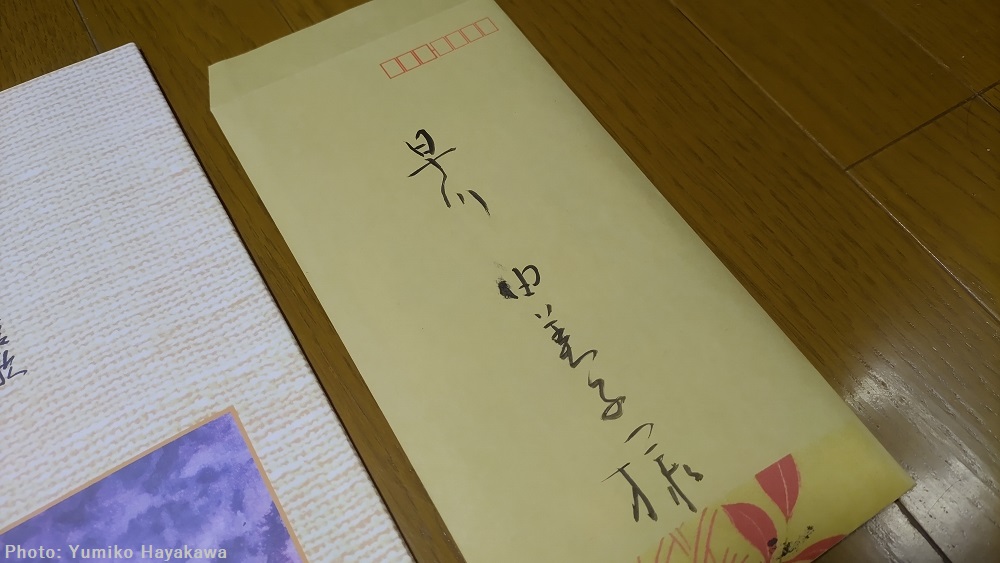 早川 由美子様
Photo: Yumiko Hayakawa